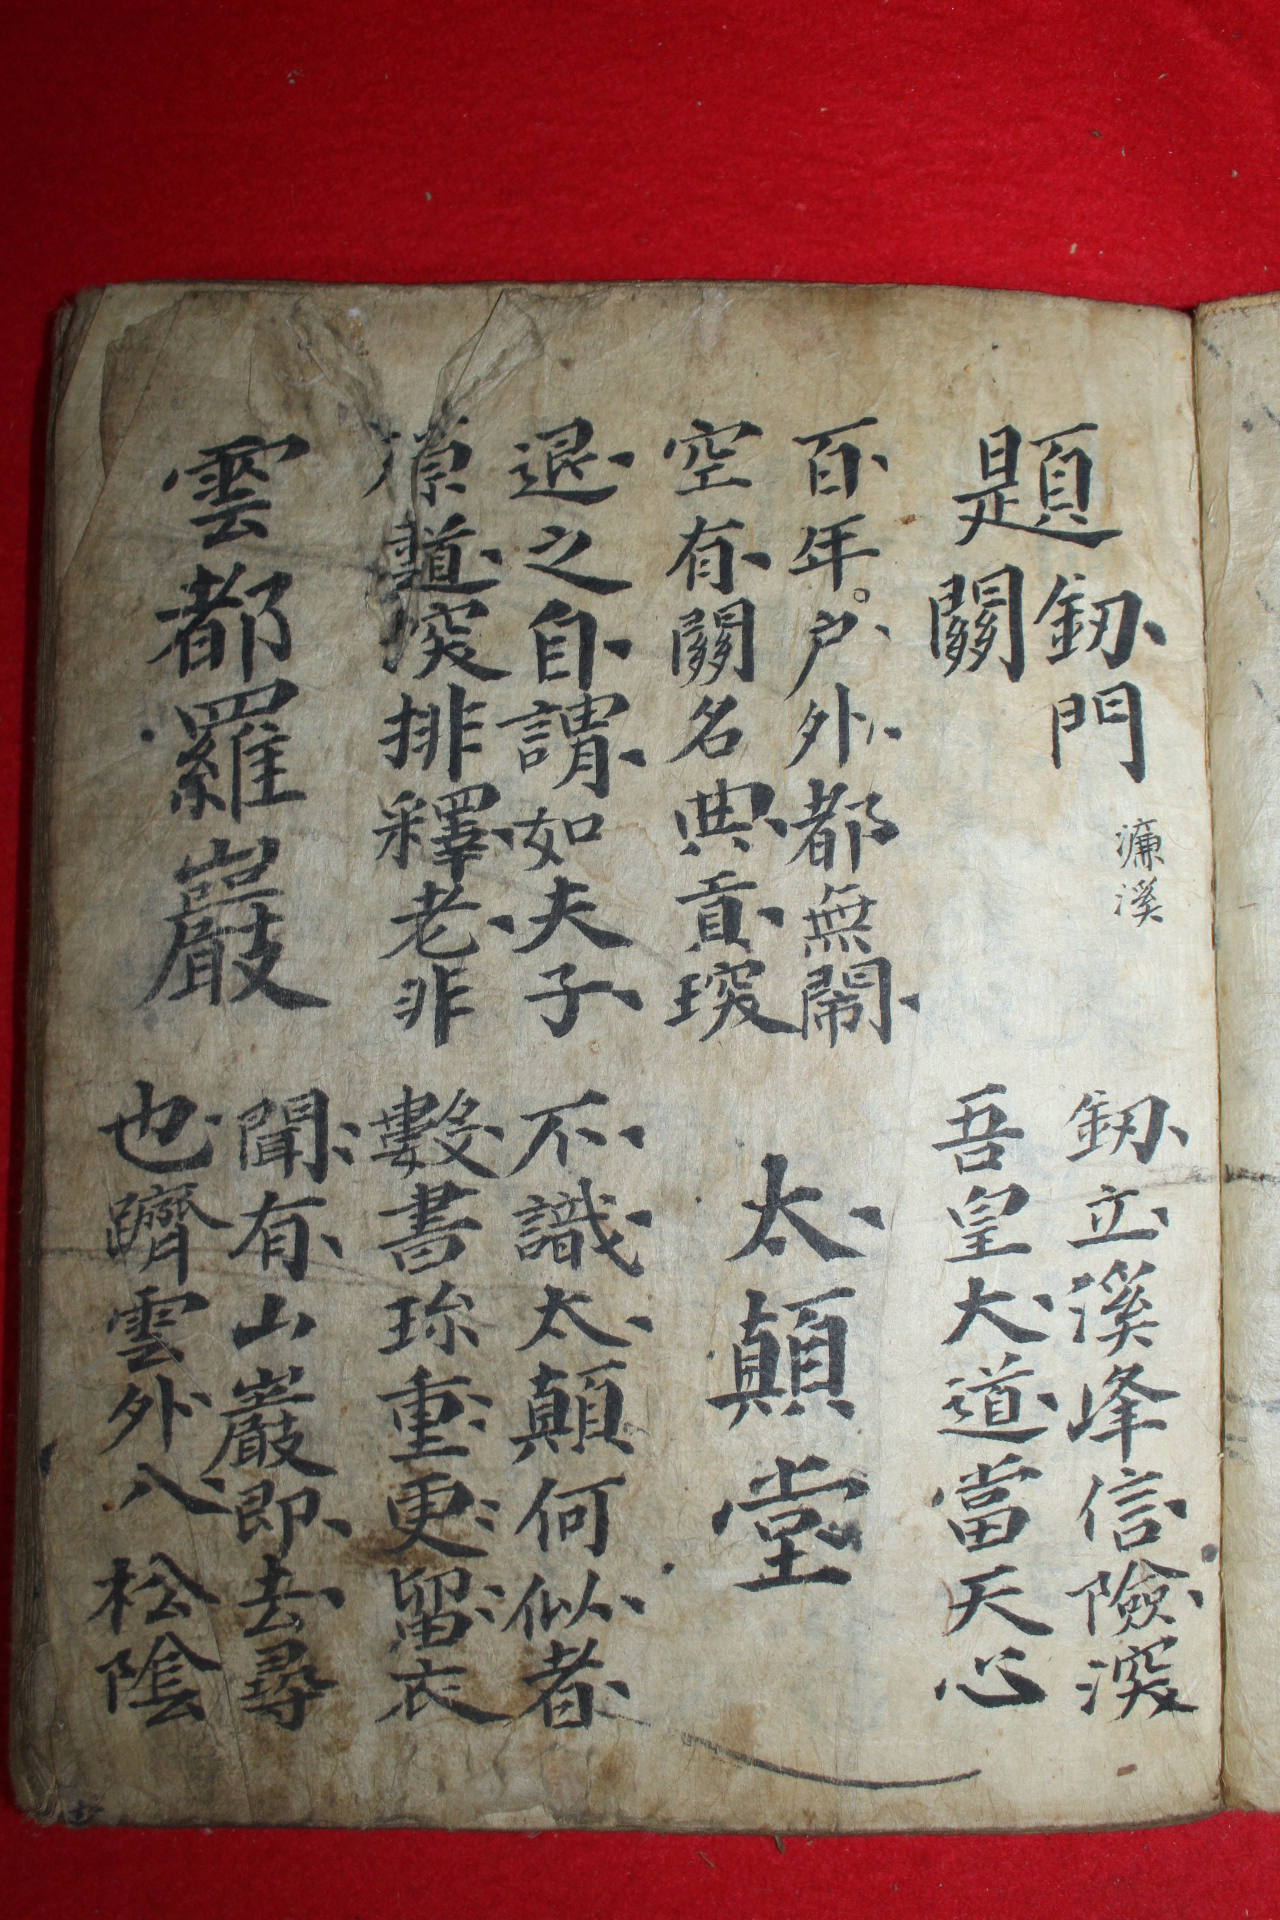 題釰門
關
濂溪
釰立溪峰信險深
吾皇大道當天心
百年戶外都無閙
空有關名典貢琛
太顚堂
退之自謂如夫子
原道深排釋老非
不識太顚何似者
數書珎重更留衣
雲都羅巖
聞有山巖即去尋
也躋雲外入松陰